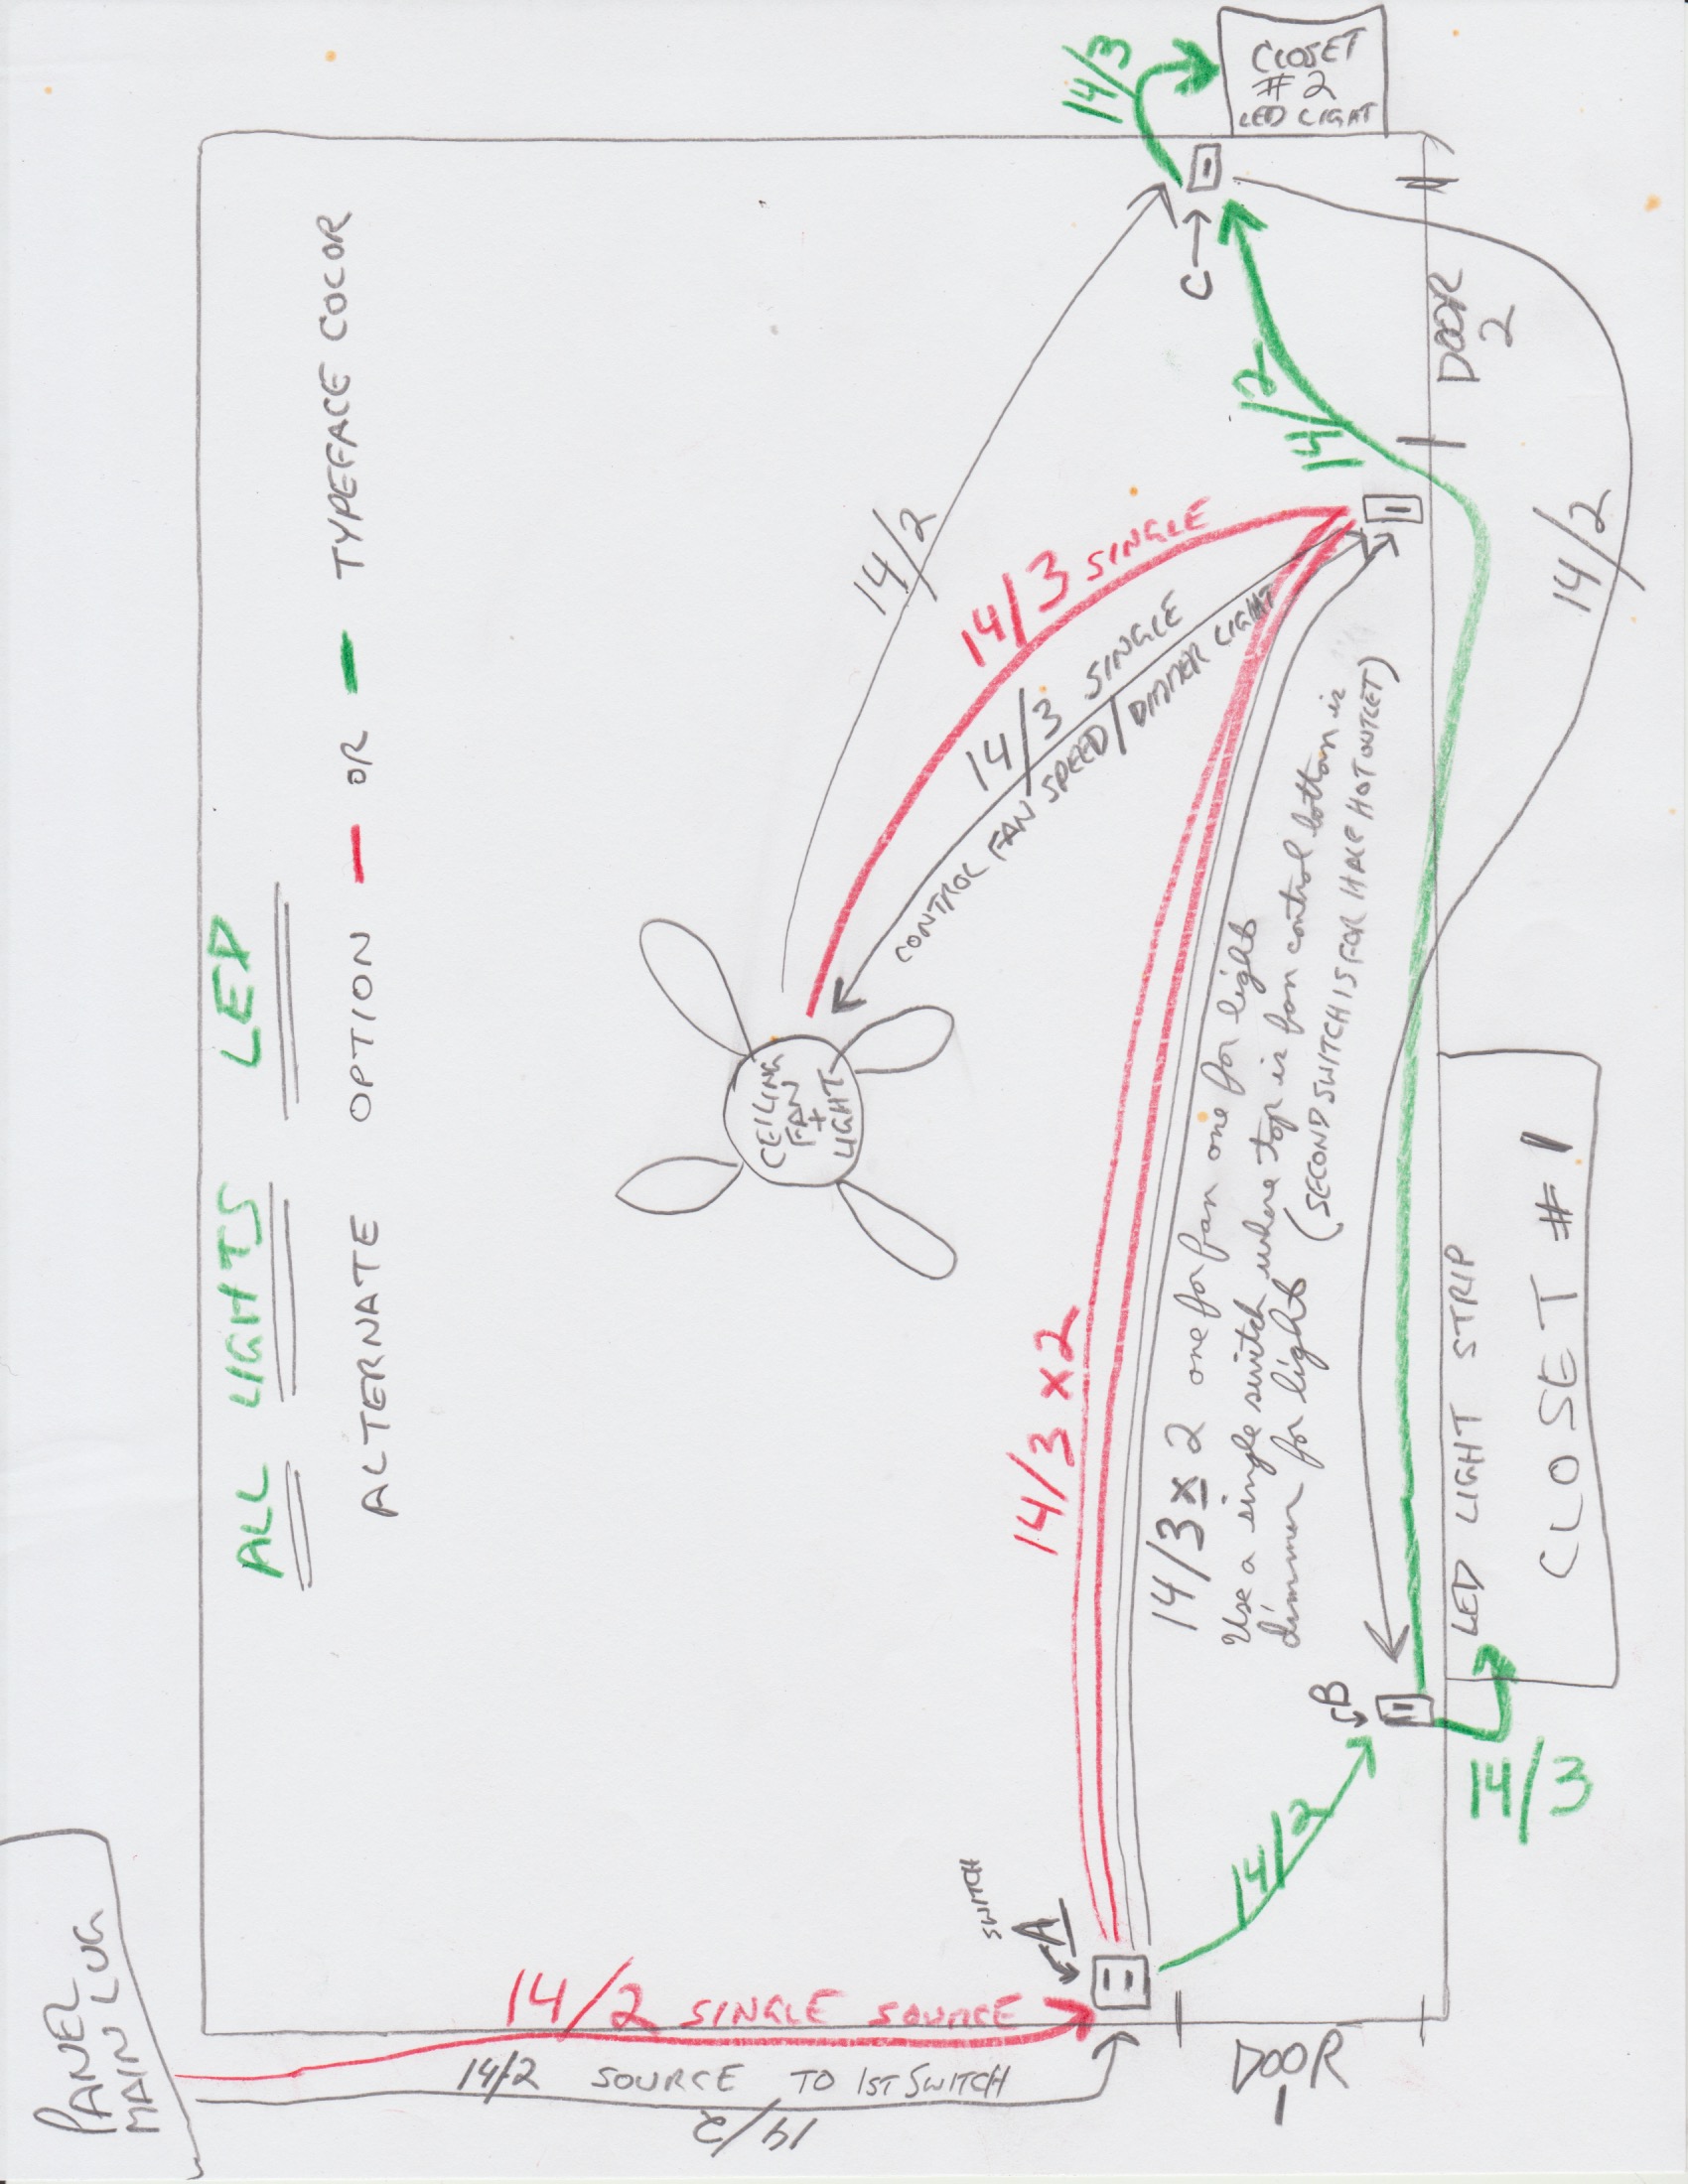 ALL LIGHTS LED
ALTERNATE OPTION - OR - TYPEFACE COLOR
CEILING
FAN
+
LIGHT
14/2
14/3 SINGLE
14/3 SINGLE
CONTROL FAN SPEED/DIMMER LIGHT
14/3 x2
14/3 x 2 one for fan one for light
Use a single switch where top is fan control bottom is
dimmer for light
(SECOND SWITCH IS FOR HALF HOT OUTLET)
PANEL
MAIN LUG
14/2 SINGLE SOURCE
14/2 SOURCE TO 1ST SWITCH
14/2
SWITCH
A
DOOR
1
14/2
B
14/3
LED LIGHT STRIP
CLOSET #1
14/2
14/2
DOOR
2
C
14/3
CLOSET
#2
LED LIGHT